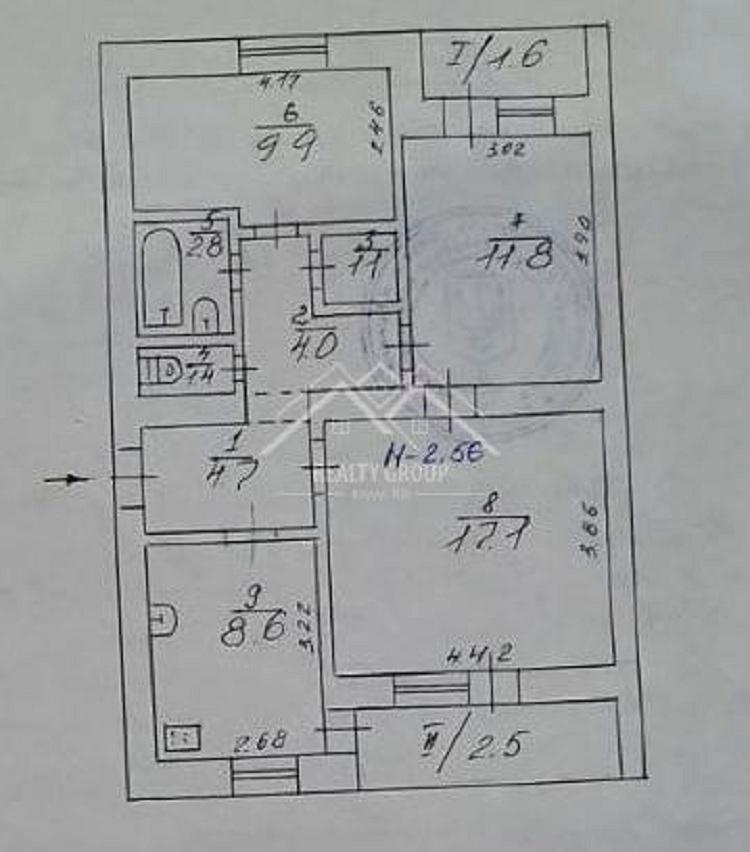 I/1.6
4.17
6
9.9
2.46
3.02
5
2.8
3
1.1
7
11.8
3.90
2
4.0
4
1.4
H-2.56
1
4.7
REALTY GROUP
8
17.1
3.86
9
8.6
3.22
4.42
2.68
II/2.5